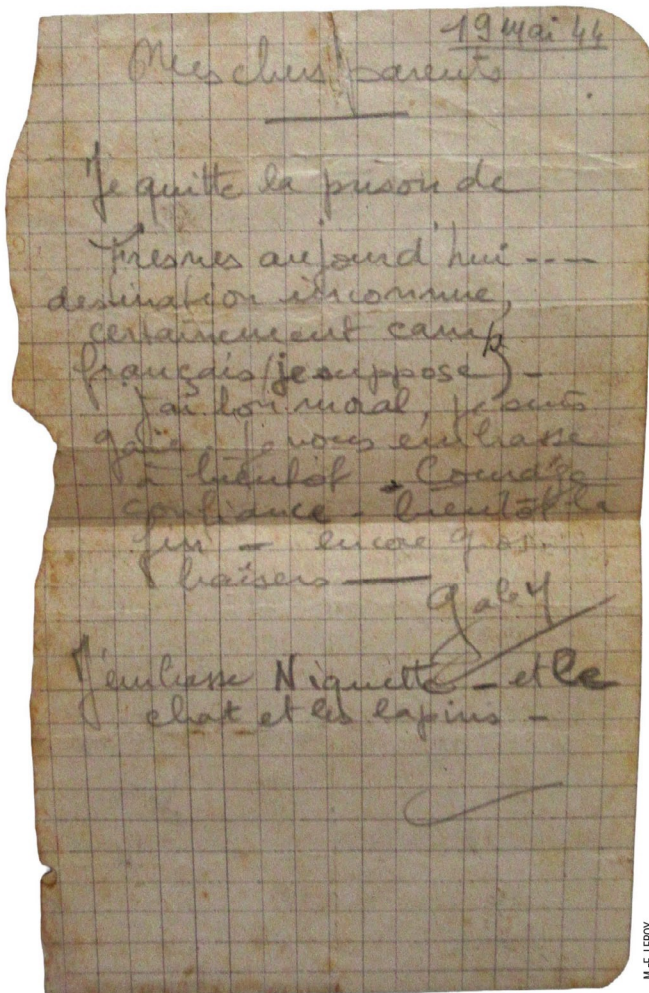 19 mai 44
Mes chers parents
Je quitte la prison de
Fresnes aujourd'hui ----
destination inconnue,
certainement camp
français (je suppose) -
J'ai bon moral, je suis
gaie. Je vous embrasse
à bientôt. Courage
confiance - bientôt la
fin - encore gros
baisers —
Gaby
J'embrasse Niquette - et le
chat et les lapins -
M.-E. LEROY